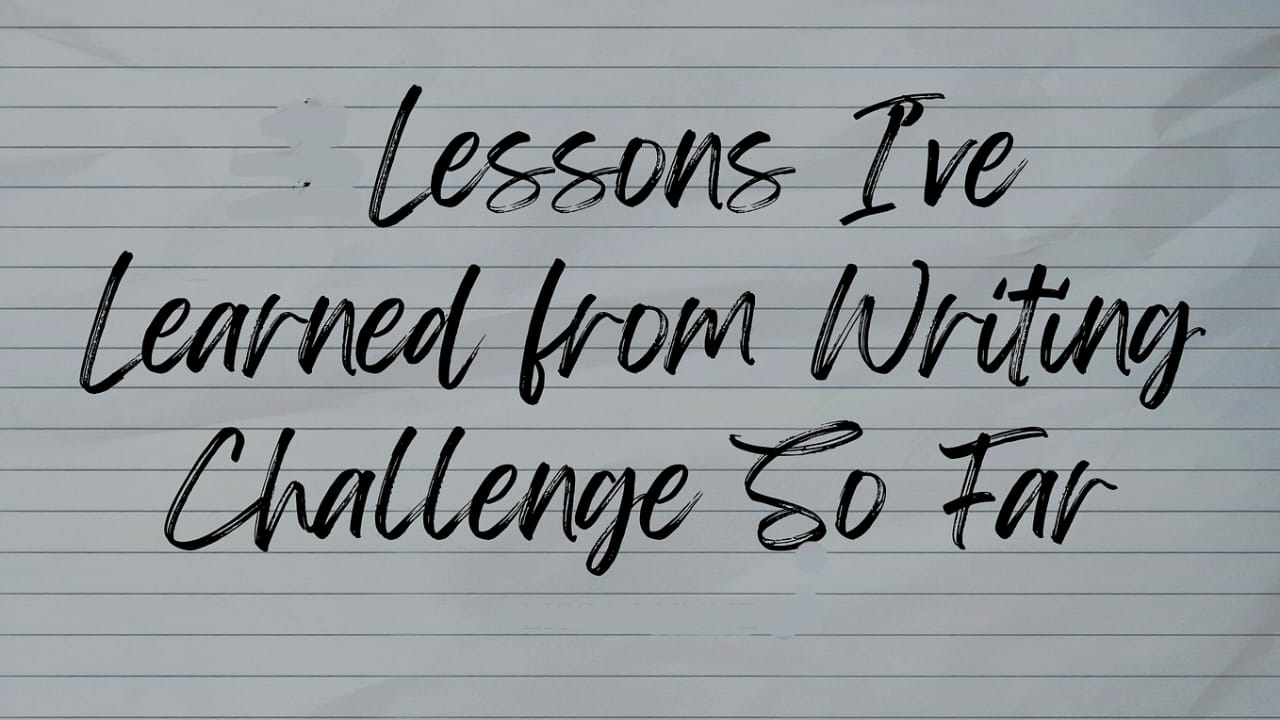 Lessons I've
Learned from Writing
Challenge So Far